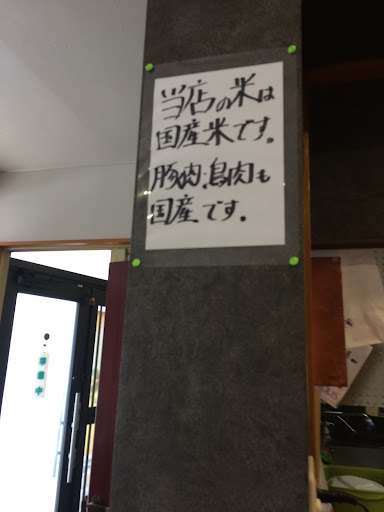 当店の米は
国産米です。
豚肉・鳥肉も
国産です。